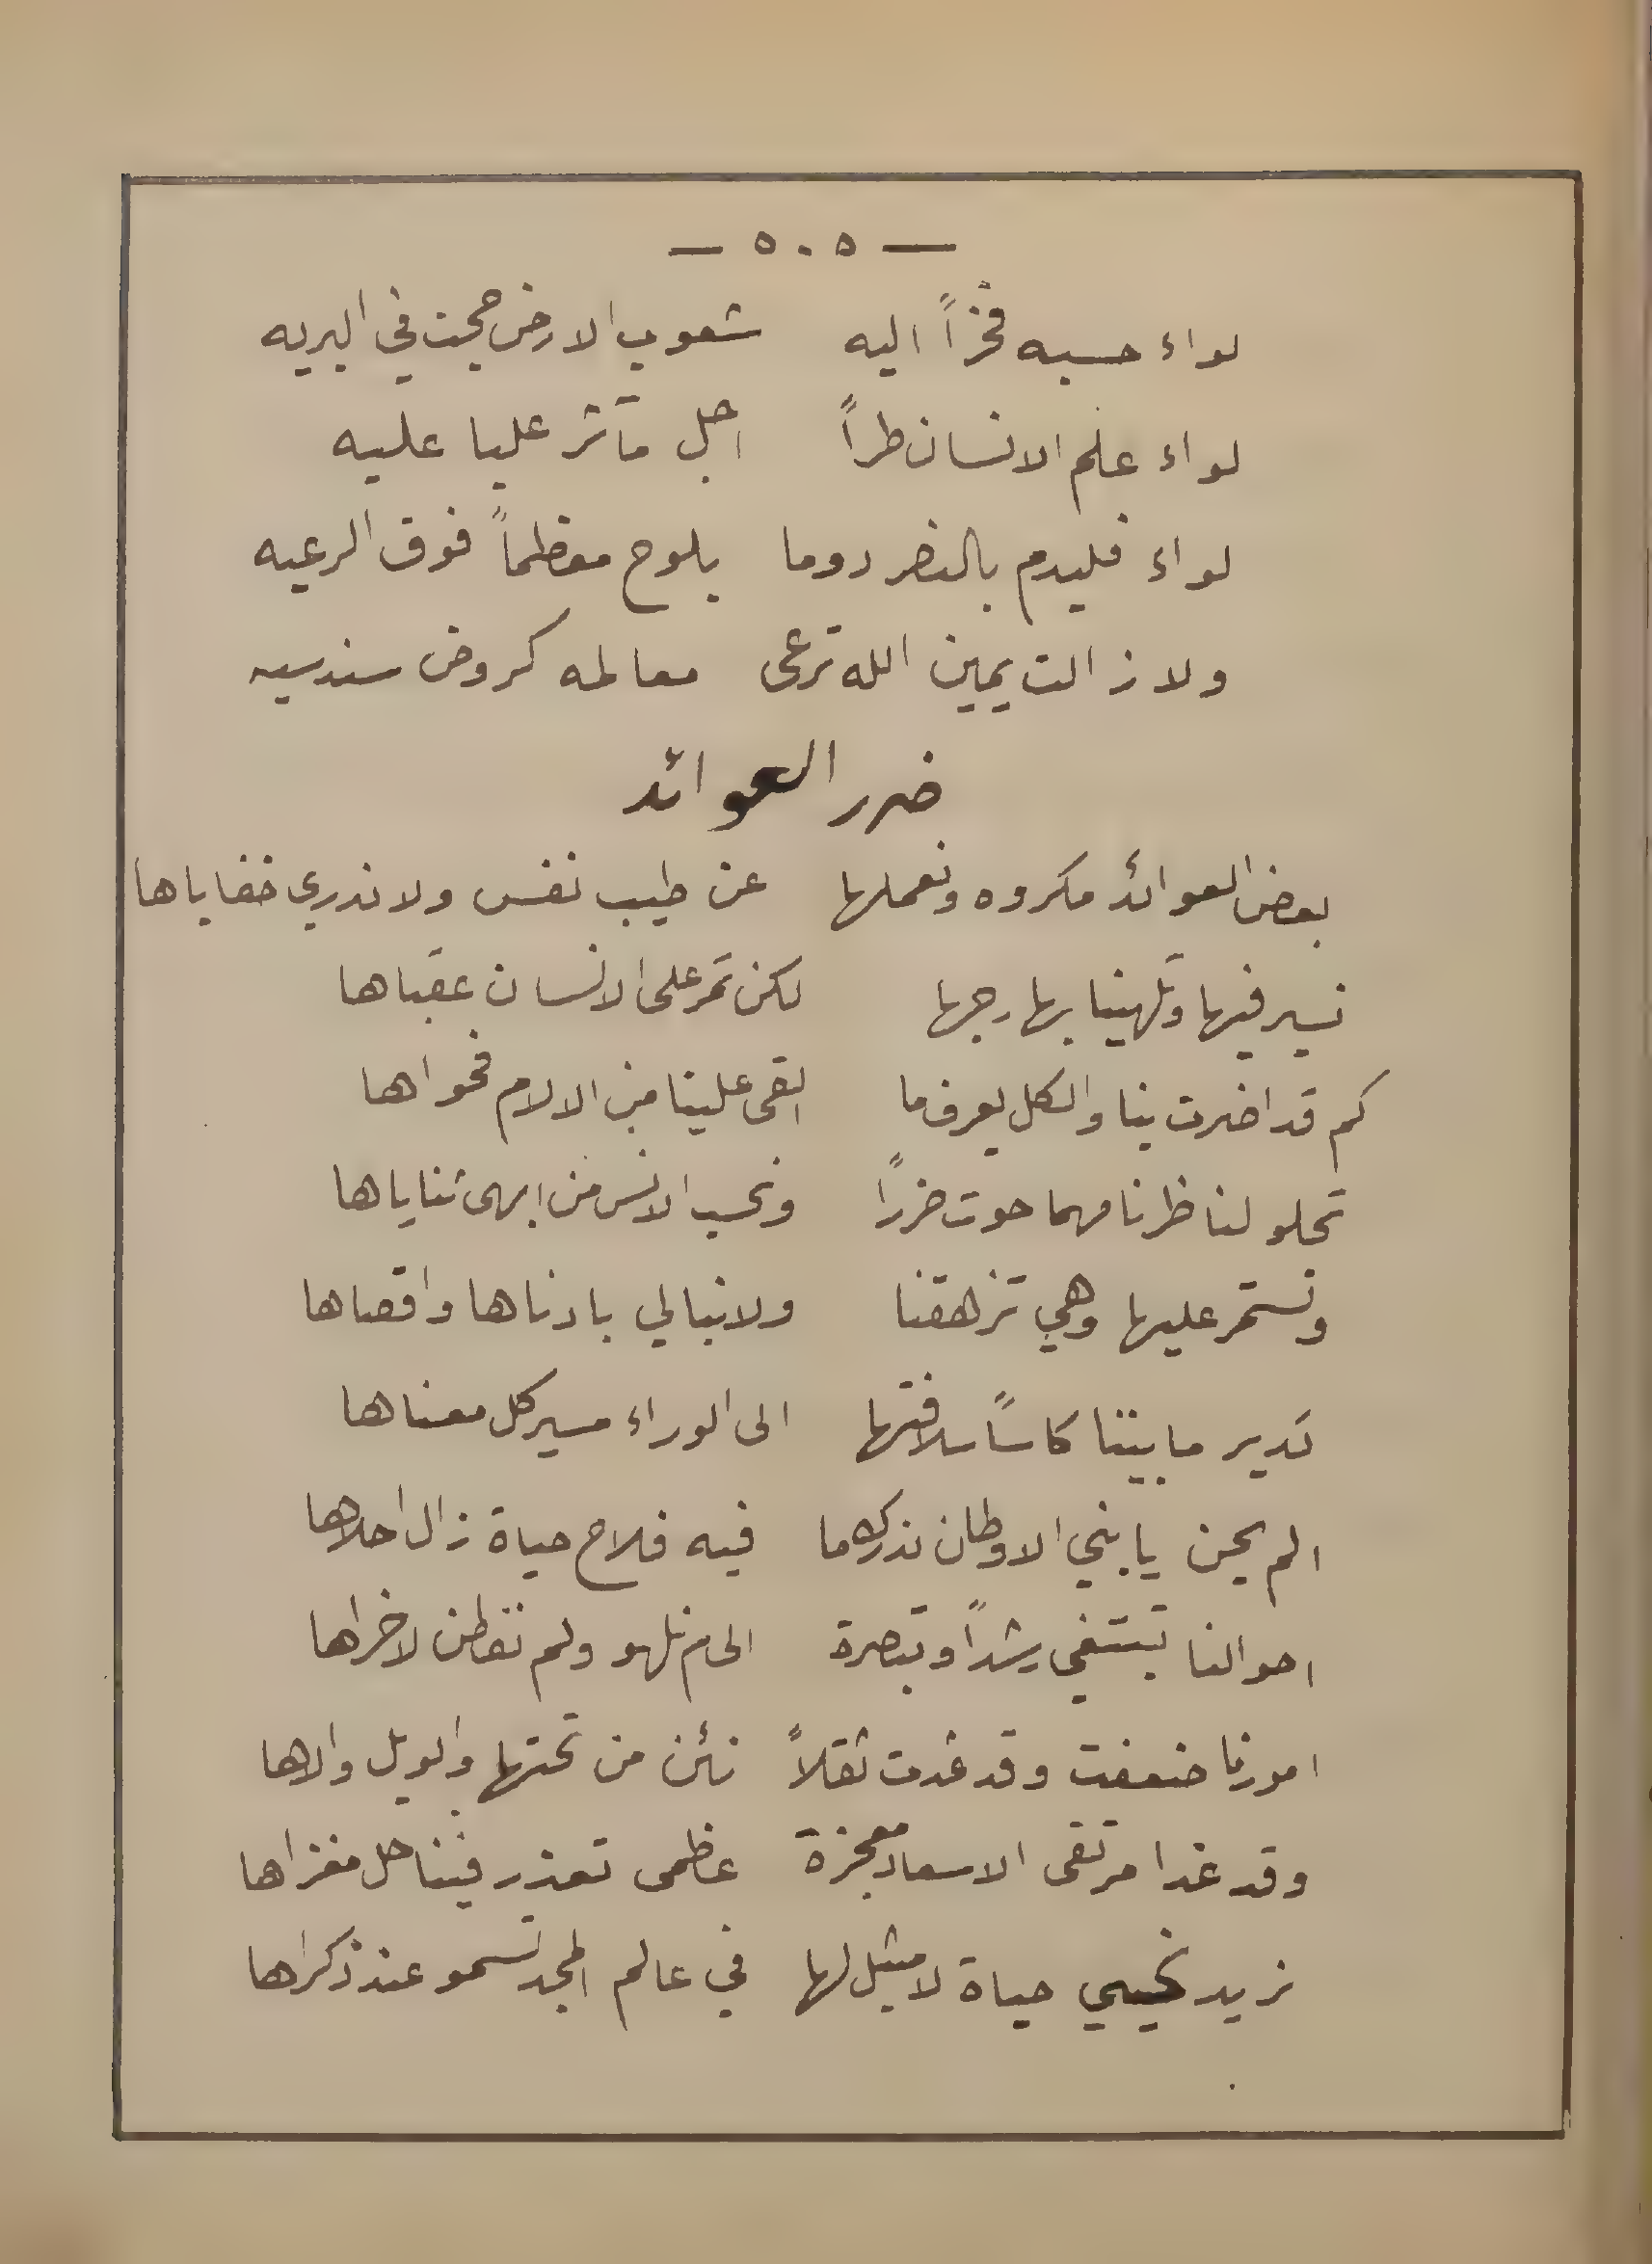 — ٥٠٥ —
لواء حسبه فخراً اليه شعوب الارض حجت في البريه
لواء علم الانسان طراً اجل مآثر عليا عليه
لواء فليدم بالنصر دوما يلوح معظماً فوق الرعيه
ولا زالت يمين الله ترعى معالمه كروض سندسيه
ضرر العوائد
بعض العوائد مكروه ونعملها عن طيب نفس ولا ندري خفاياها
نسير فيها وتلهينا بهارجها لكن تمر على الانسان عقباها
كم قد اضرت بنا والكل يعرف ما القى علينا من الالام فحواها
تحلو لناظرنا مهما حوت ضرراً ونحسب الانس من ابهى ثناياها
ونستمر عليها وهي تزهقنا ولا نبالي بادناها واقصاها
تدير ما بيننا كاساً سلافتها الى الوراء مسير كل معناها
الم يحن يا بني الاوطان ندرك ما فيه فلاح حياة زال احلاها
احوالنا تبتغي رشداً وتبصرة الى م نلهو ولم نفطن لاخراها
امورنا ضعفت وقد غدت ثقلاً نئن من تحتها والويل والاها
وقد غدا مرتقى الاسعاد معجزة عظمى تعذر فينا حل مغزاها
نريد نحيي حياة لا مثيل لها في عالم المجد تسمو عند ذكراها